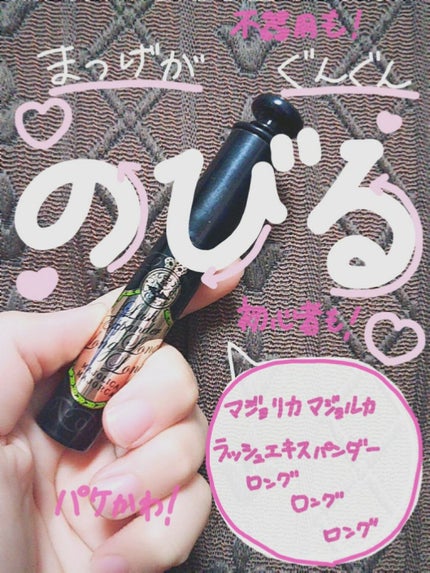 不器用も!
まつげが ぐんぐん
のびる
初心者も!
マジョリカ マジョルカ
ラッシュエキスパンダー
ロング
ロング
ロング
パケかわ!